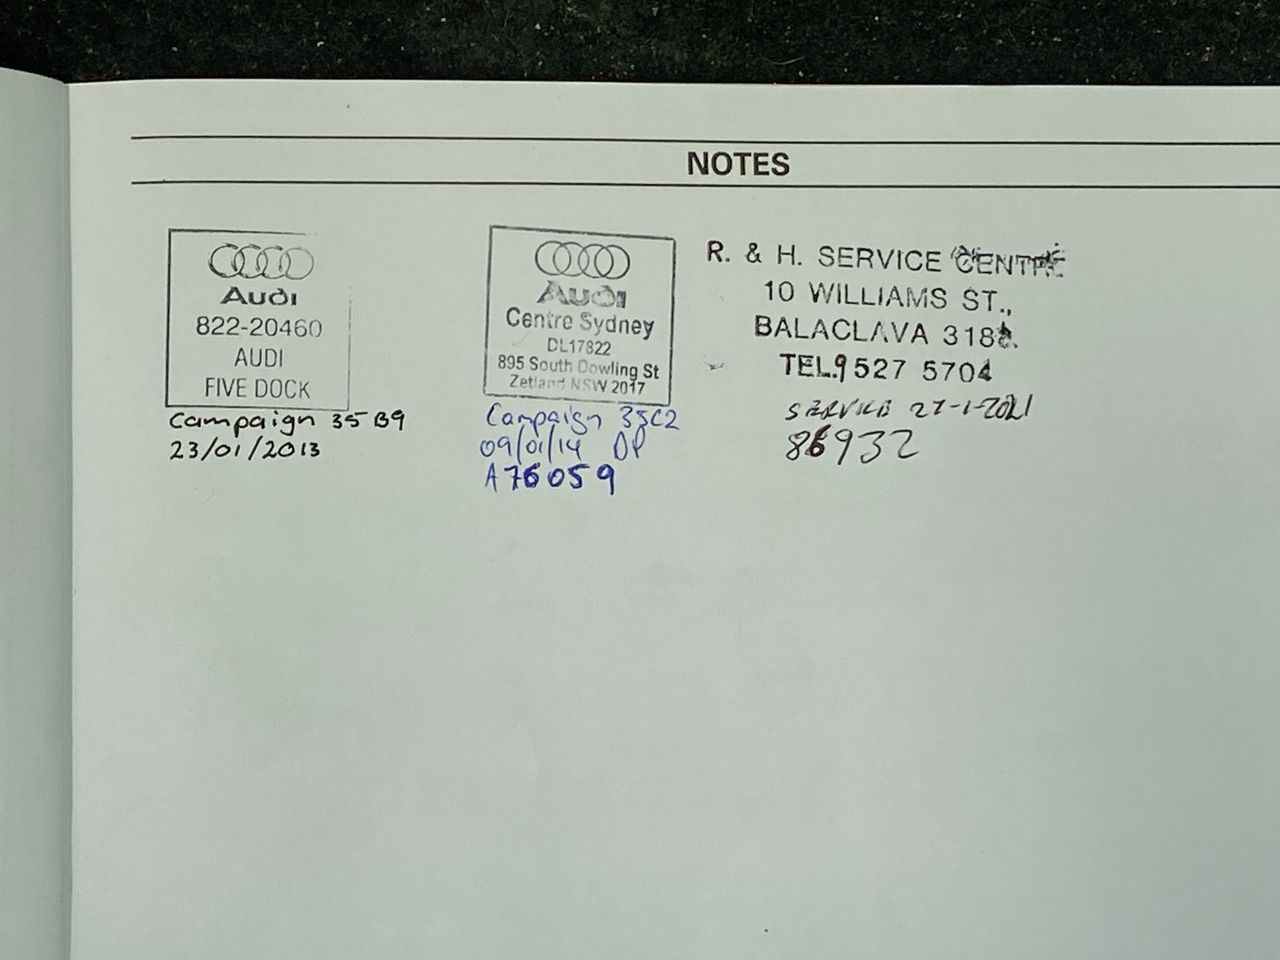 NOTES
Audi
822-20460
AUDI
FIVE DOCK
Campaign 35 B9
23/01/2013
Audi
Centre Sydney
DL17822
895 South Dowling St
Zetland NSW 2017
Campaign 35C2
09/01/14 DP
A76059
R. & H. SERVICE CENTRE
10 WILLIAMS ST.,
BALACLAVA 3183.
TEL. 9527 5704
SERVICE 27-1-2021
86932